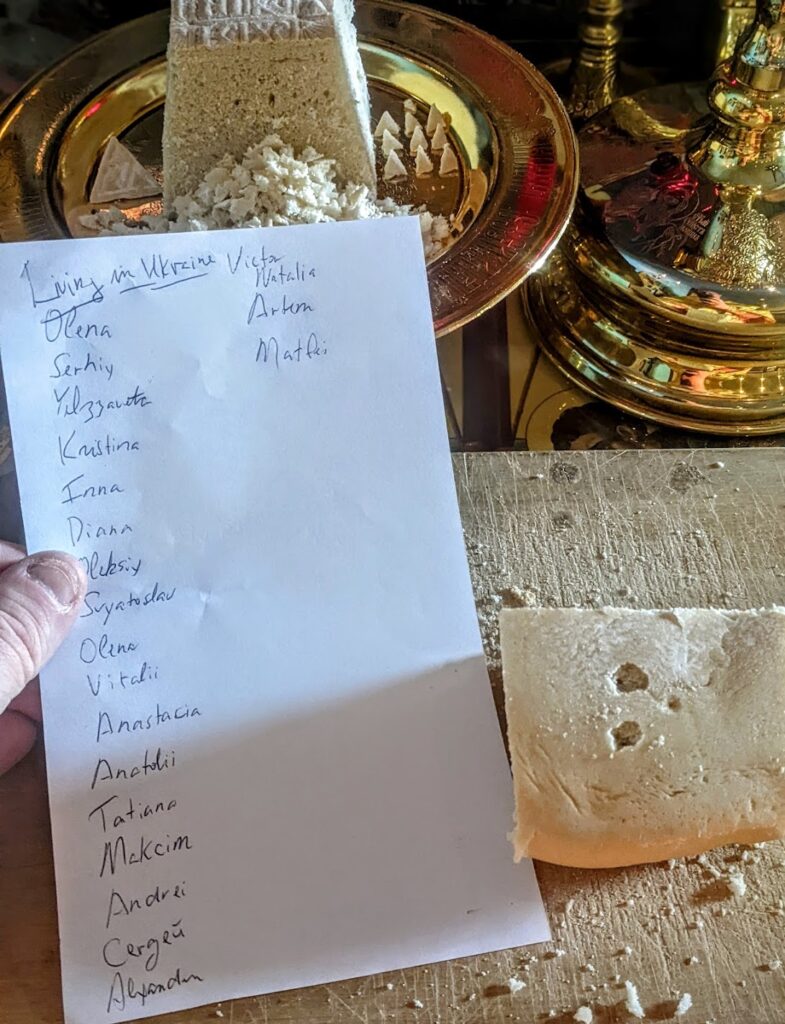 Living in Ukraine
Olena
Serhiy
Kristina
Inna
Diana
Oleksiy
Svyatoslav
Olena
Vitalii
Anastacia
Anatolii
Tatiana
Makcim
Andrei
Сергей
Victor
Natalia
Artem
Matfei